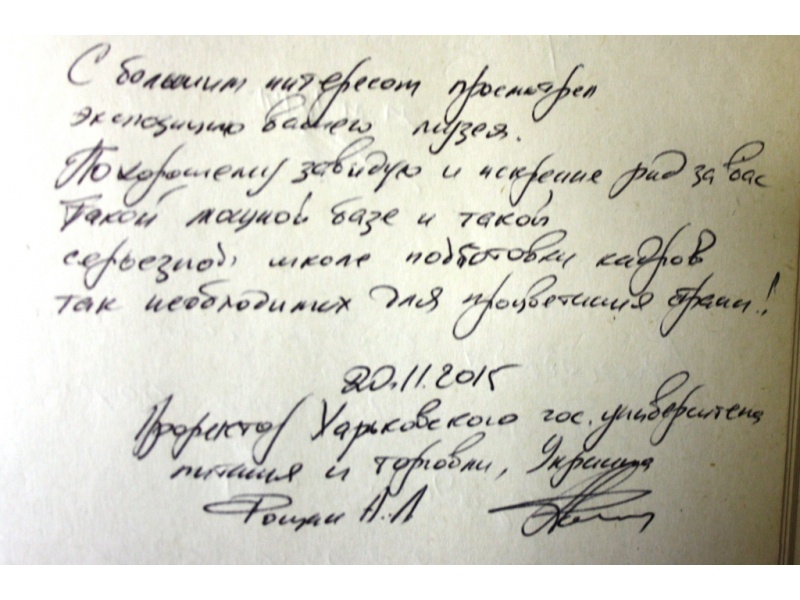 С большим интересом просмотрел
экспозицию вашего музея.
По хорошему завидую и искренне рад за вас
Такой мощной базе и такой
серьезной школе подготовки кадров
так необходимых для процветания страны!
20.11.2015
Проректор Харьковского гос. университета
питания и торговли, Украина
А.Л